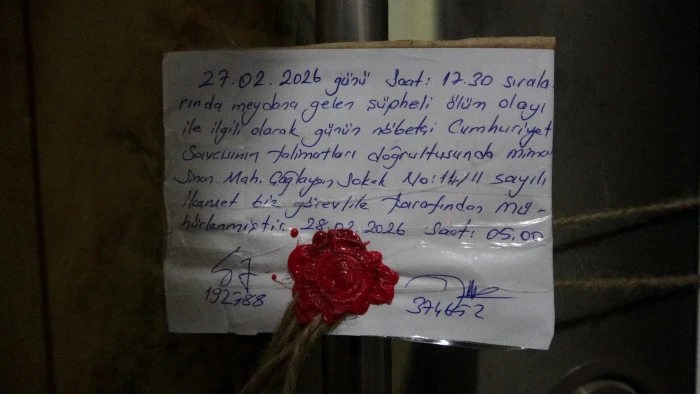 27.02.2026 günü Saat: 17.30 sırala
rında meydana gelen şüpheli ölüm olayı
ile ilgili olarak günün nöbetçi Cumhuriyet
Savcısının talimatları doğrultusunda Mima
Sinan Mah. Çağlayan Sokak No:14/11 sayılı
ikamet biz görevlile tarafından mü-
hürlenmiştir. 28.02.2026 Saat: 05.00
192788
374652